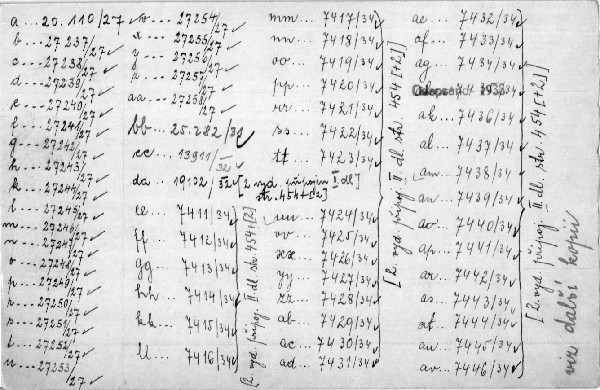 a ... 20.110/27
b ... 27237/27
c ... 27238/27
d ... 27239/27
e ... 27240/27
f ... 27241/27
g ... 27242/27
h ... 27243/27
k ... 27244/27
l ... 27245/27
m ... 27246/27
n ... 27247/27
o ... 27248/27
p ... 27249/27
r ... 27250/27
s ... 27251/27
t ... 27252/27
u ... 27253/27
v ... 27254/27
x ... 27255/27
y ... 27256/27
z ... 27257/27
aa ... 27258/27
bb ... 25.282/31
cc ... 13911/II/32
da ... 19102/32 [2 vyd. připojen II dl str. 454+[2]
ee ... 7411/34
ff ... 7412/34
gg ... 7413/34
hh ... 7414/34
kk ... 7415/34
ll ... 7416/34
[2. vyd. připoj. II. dl. str. 454 [2]
mm ... 7417/34
nn ... 7418/34
oo ... 7419/34
pp ... 7420/34
rr ... 7421/34
ss ... 7422/34
tt ... 7423/34
uu ... 7424/34
vv ... 7425/34
xx ... 7426/34
yy ... 7427/34
zz ... 7428/34
ab ... 7429/34
ac ... 7430/34
ad ... 7431/34
[2. vyd. připoj. II. dl. str. 454 [+2]
ae ... 7432/34
af ... 7433/34
ag ... 7434/34
ak ... 7436/34
al ... 7437/34
am ... 7438/34
an ... 7439/34
ao ... 7440/34
ap ... 7441/34
ar ... 7442/34
as ... 7443/34
at ... 7444/34
au ... 7445/34
av ... 7446/34
[2. vyd. připoj. II. dl. str. 454 [+2]
viz další kopii